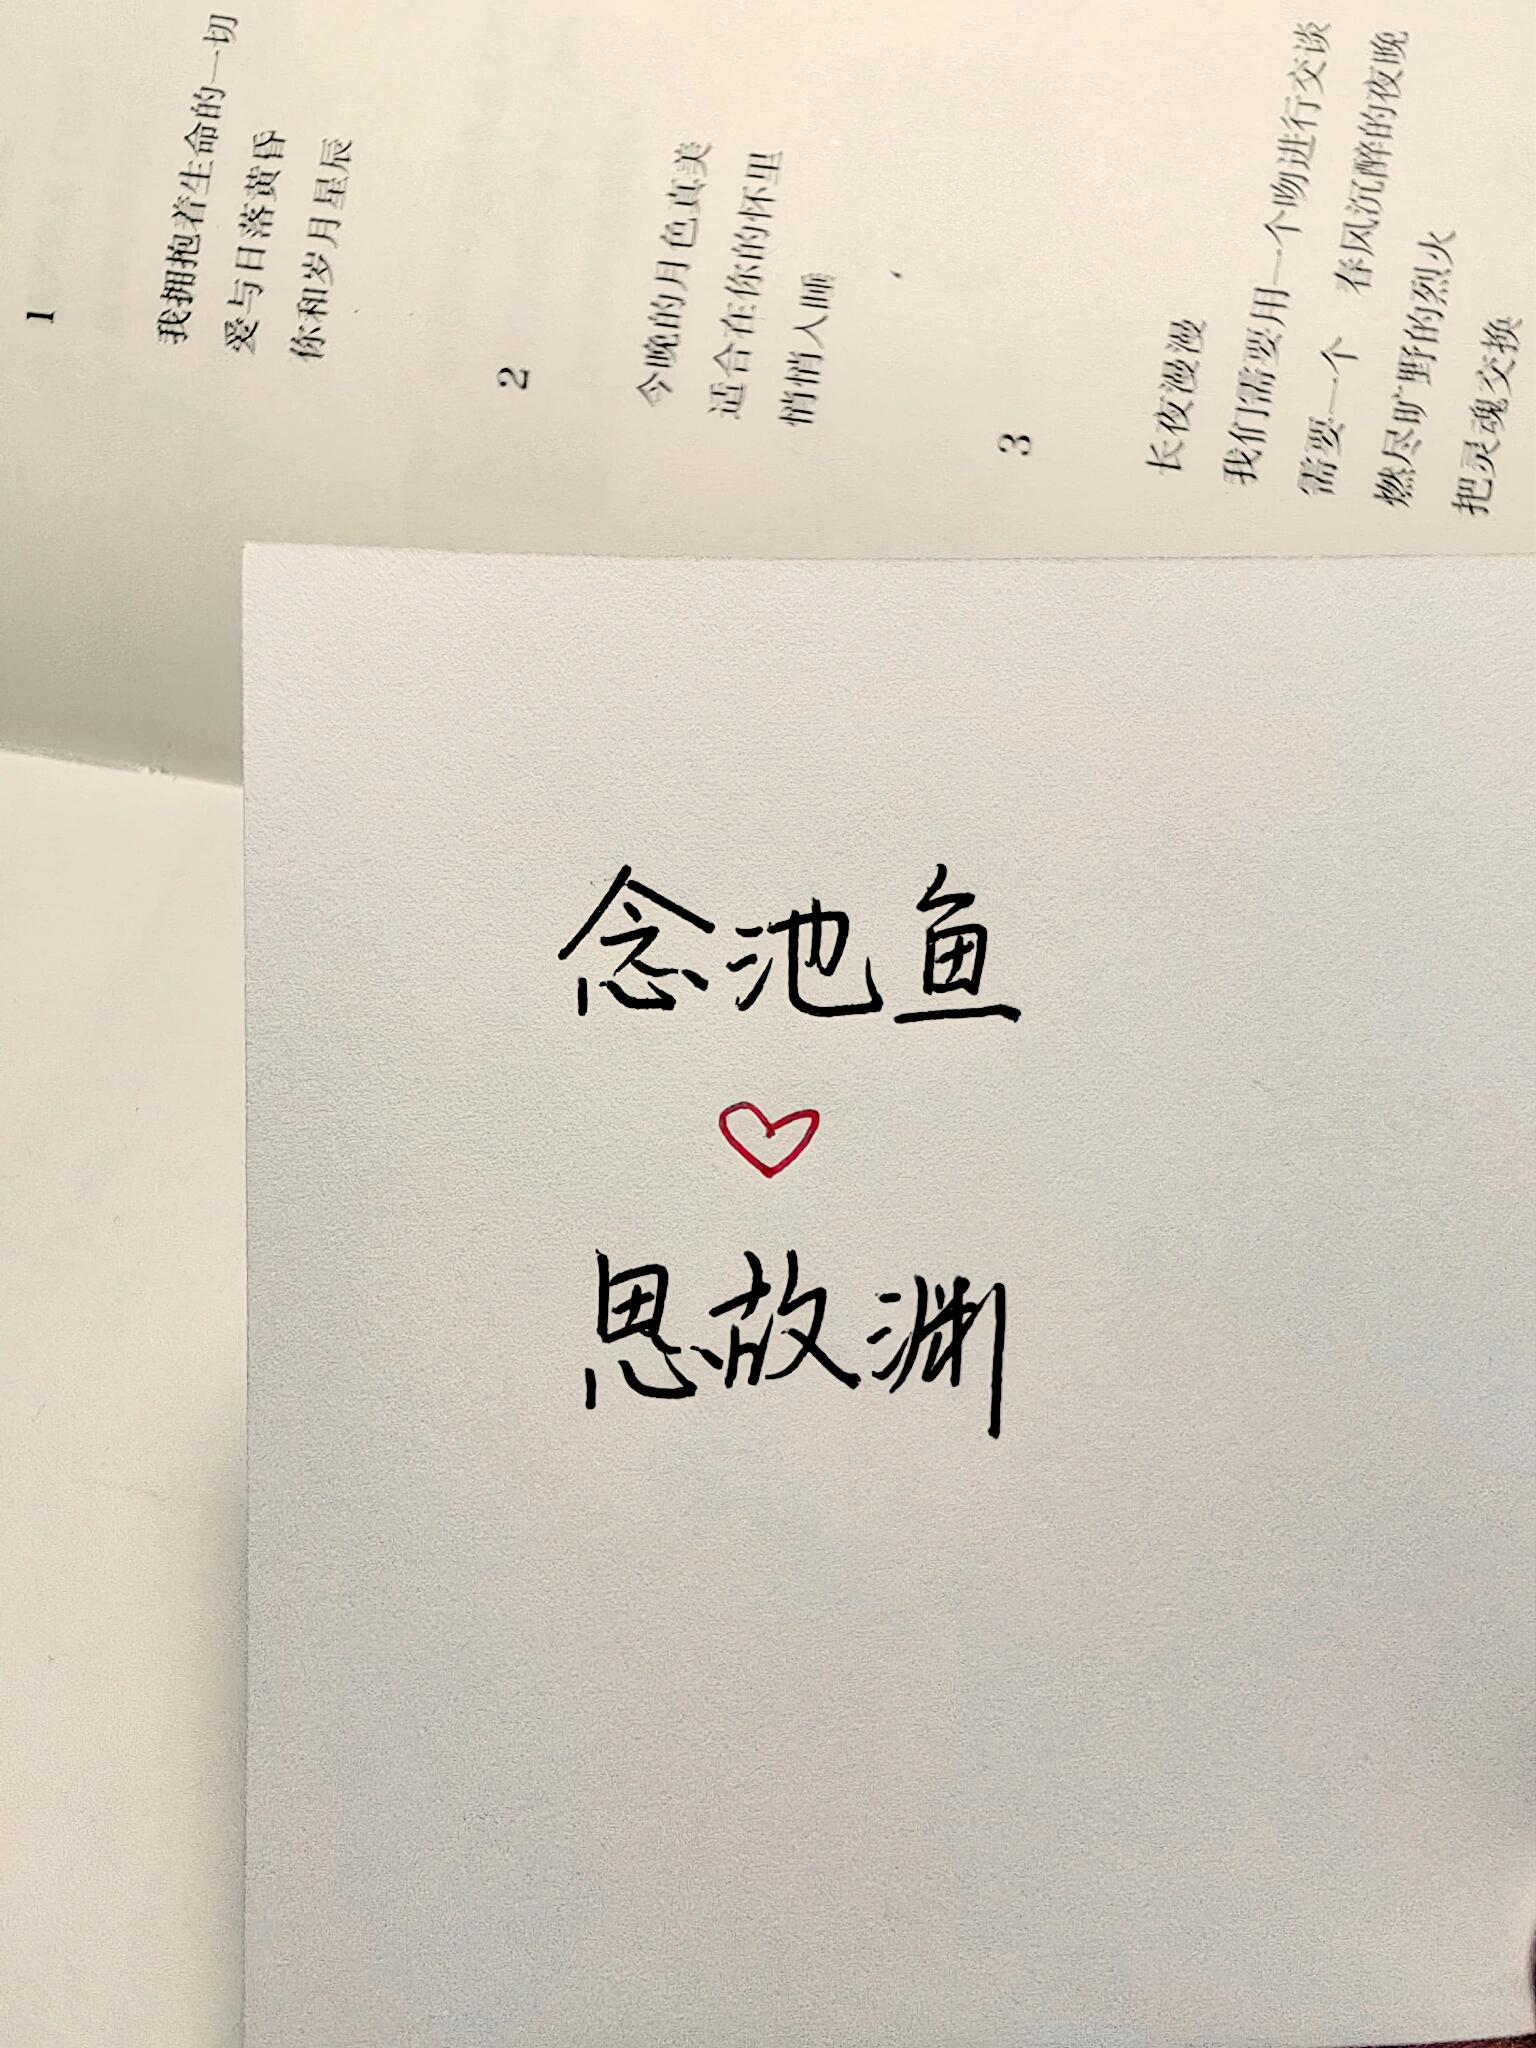 1
我拥抱着生命的一切
爱与日落黄昏
你和岁月星辰
2
今晚的月色真美
适合在你的怀里
悄悄入睡
3
长夜漫漫
我们需要用一个吻进行交谈
需要一个 春风沉醉的夜晚
燃尽旷野的烈火
把灵魂交换
念池鱼
思故渊